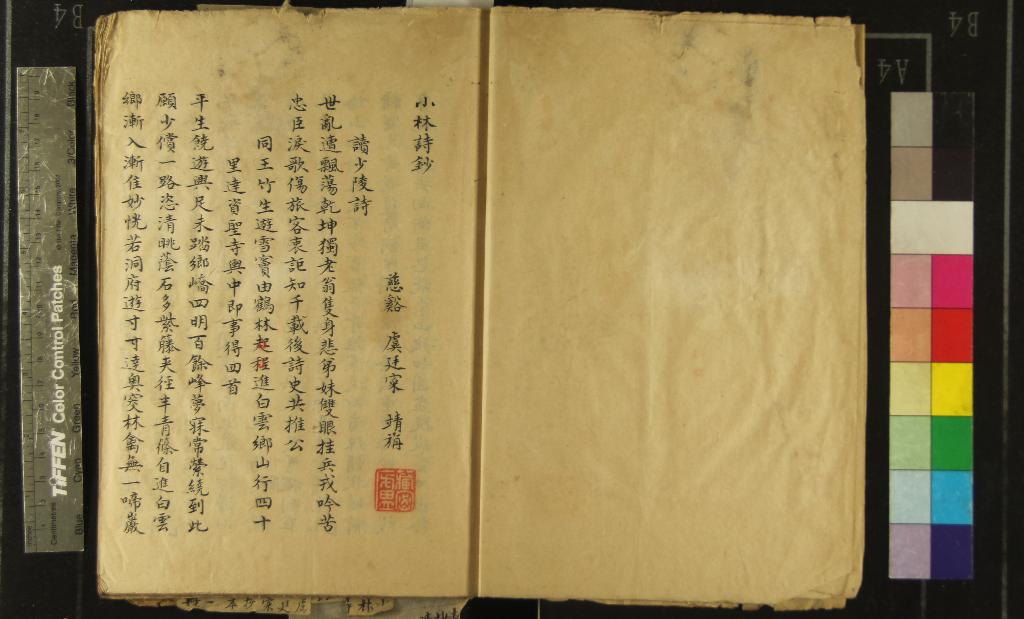 小林詩鈔
慈谿 虞廷寀 靖旃
讀少陵詩
世亂遭飄蕩乾坤獨老翁隻身悲弟妹雙眼挂兵戎吟苦
忠臣淚歌傷旅客衷詎知千載後詩史共推公
同王竹生遊雪竇由鶴林起程進白雲鄉山行四十
里達資聖寺輿中即事得四首
平生饒遊興足未踏鄉嶠四明百餘峰夢寐常縈繞到此
願少償一路恣清眺蔭石多紫藤夾徑半青篠自進白雲
鄉漸入漸佳妙恍若洞府遊寸寸達奧窔林禽無一啼巖
TIFFEN Color Control Patches
Centimetres
Inches
Blue
Cyan
Green
Yellow
Red
Magenta
White
3/Color
Black
B4
B4
A4